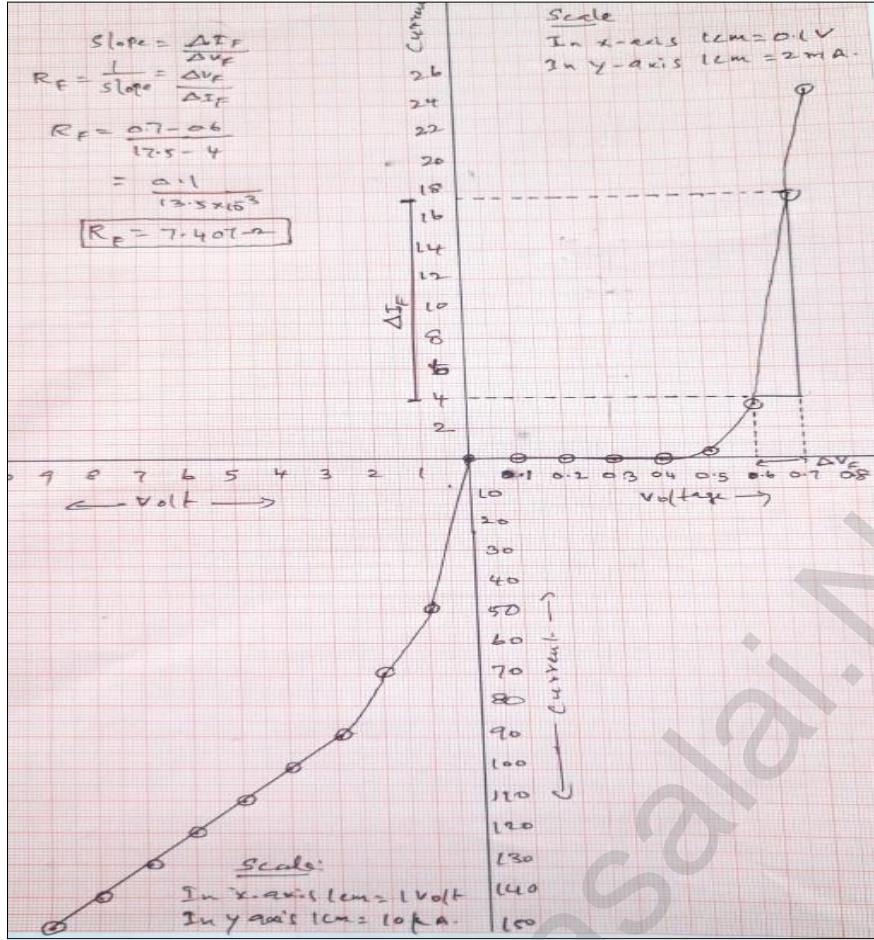 Slope = ΔI_F / ΔV_F
R_F = 1 / Slope = ΔV_F / ΔI_F
R_F = 0.7 - 06 / 17.5 - 4
= 0.1 / 13.5 × 10^3
R_F = 7.407 Ω
Scale
In x-axis 1cm = 0.1 V
In y-axis 1cm = 2 mA.
Current
26
24
22
20
18
16
14
12
10
8
6
4
2
ΔI_F
9 8 7 6 5 4 3 2 1
0.1 0.2 0.3 0.4 0.5 0.6 0.7 0.8
ΔV_F
← Volt →
Voltage →
10
20
30
40
50
60
70
80
90
100
110
120
130
140
150
← Current →
Scale:
In x-axis 1cm = 1 Volt
In y axis 1cm = 10 μA.